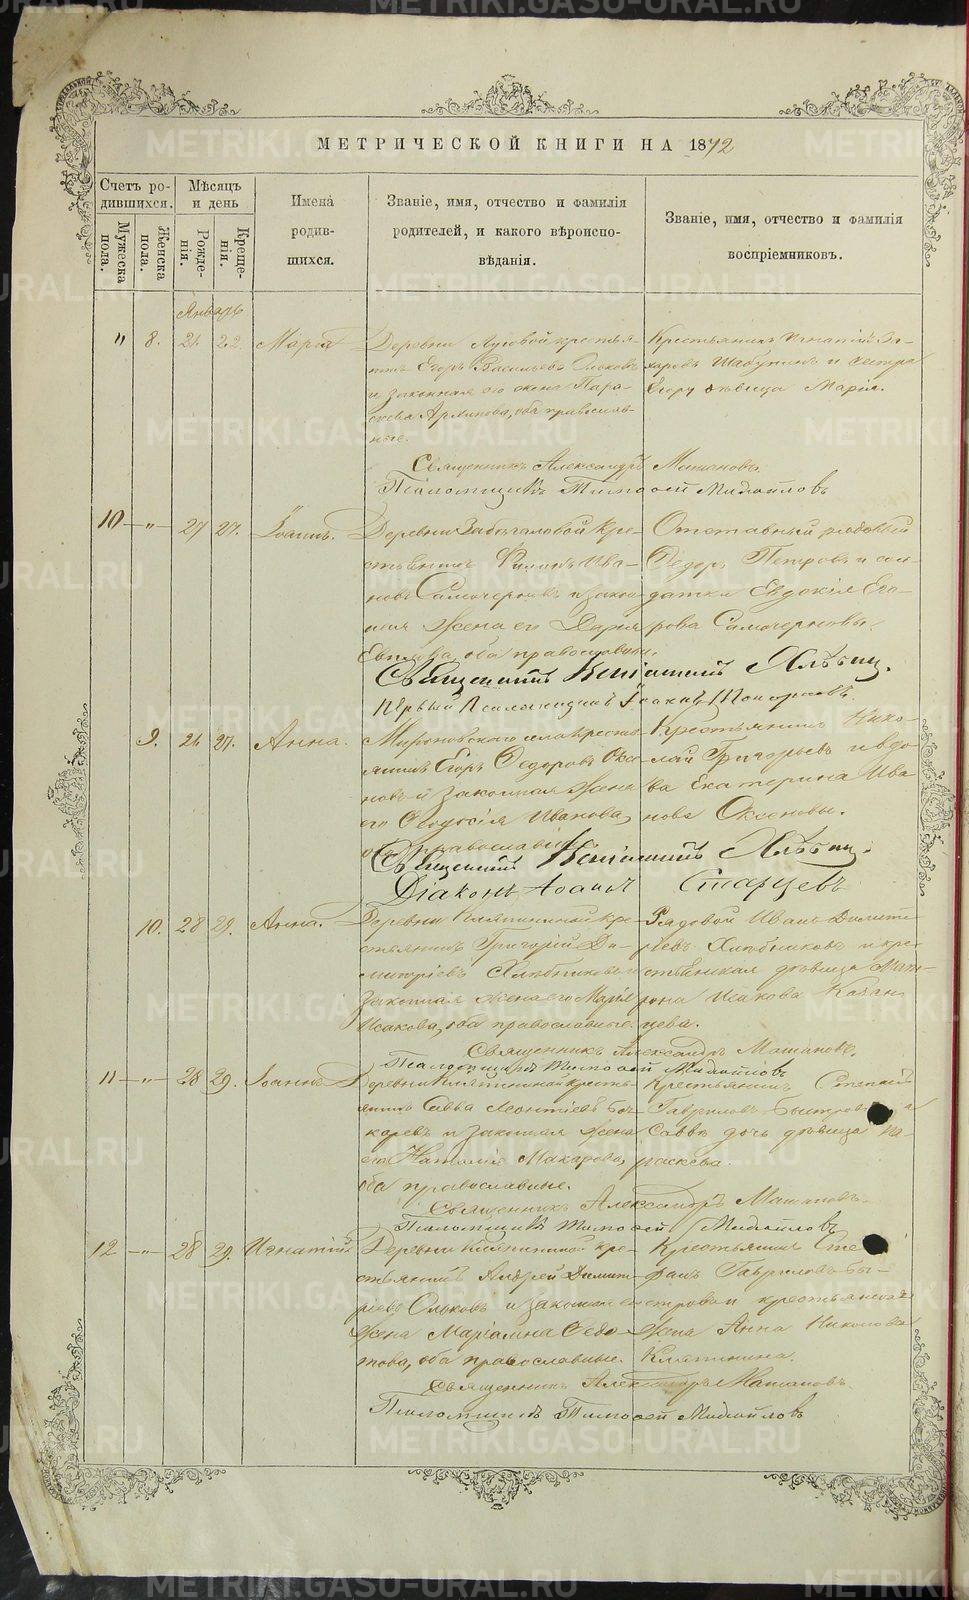 МЕТРИЧЕСКОЙ КНИГИ НА 1872
Счетъ ро-
дившихся.
Мѣсяцъ
и день
Мужеска
пола.
Женска
пола.
Рожде-
нія.
Креще-
нія.
Имена́
родив-
шихся.
Званіе, имя, отчество и фамилія
родителей, и какого вѣроиспо-
вѣданія.
Званіе, имя, отчество и фамилія
воспріемниковъ.
Январь
" 8. 21. 22. Марія
Деревни Луговой крестья-
нинъ Егоръ Васильевъ
и законная его жена Пара-
скева Архипова, оба православ-
ные.
Крестьянинъ Игнатій За-
харовъ Шабунинъ и сестра
Егору дѣвица Марія.
Священникъ Александръ
Псаломщикъ Тимофей Михайловъ
10 — " — 27 27. Іоаннъ.
Деревни кре-
стьянинъ Ива-
новъ Самочерновъ и закон-
ная жена его Дарія
оба православные.
Отставный рядовый
Ѳедоръ Петровъ и сол-
датка Евдокія Его-
рова Самочерновы.
Священникъ Веніаминъ
Первый Псаломщикъ
9. 24 27. Анна.
Мироновскаго села кресть-
янинъ Егоръ Ѳедоровъ Оксе-
новъ и законная жена
его Ѳеодосія Иванова,
оба православные.
Крестьянинъ Нико-
лай Григорьевъ и вдо-
ва Екатерина Ива-
нова Оксеновы.
Священникъ Веніаминъ
Діаконъ Іоаннъ Старцевъ
10. 28 29. Анна.
Деревни кре-
стьянинъ Григорій Ди-
митріевъ Хлѣбниковъ и
законная жена его Марія
Исакова, оба православные.
Рядовой Иванъ Димитр-
іевъ Хлѣбниковъ и кре-
стьянская дѣвица Мат-
рона Исакова Казан-
цева.
Священникъ Александръ
Псаломщикъ Тимофей Михайловъ
11 — " — 28 29. Іоаннъ
Деревни кресть-
янинъ Савва Леонтіевъ Боч-
каревъ и законная жена
его Наталія Макарова,
оба православные.
Крестьянинъ Стефанъ
Гавриловъ Быстровъ и
Савва дочь дѣвица Па-
раскева.
Священникъ Александръ
Псаломщикъ Тимофей Михайловъ
12 — " — 28 29. Игнатій
Деревни кре-
стьянинъ Андрей Димит-
ріевъ и законная его
жена Маріамна Ѳедо-
това, оба православные.
Крестьянинъ Сте-
фанъ Гавриловъ Бы-
стровъ и крестьянская
жена Анна Николова
Кляпинина.
Священникъ Александръ
Псаломщикъ Тимофей Михайловъ
METRIKI.GASO-URAL.RU